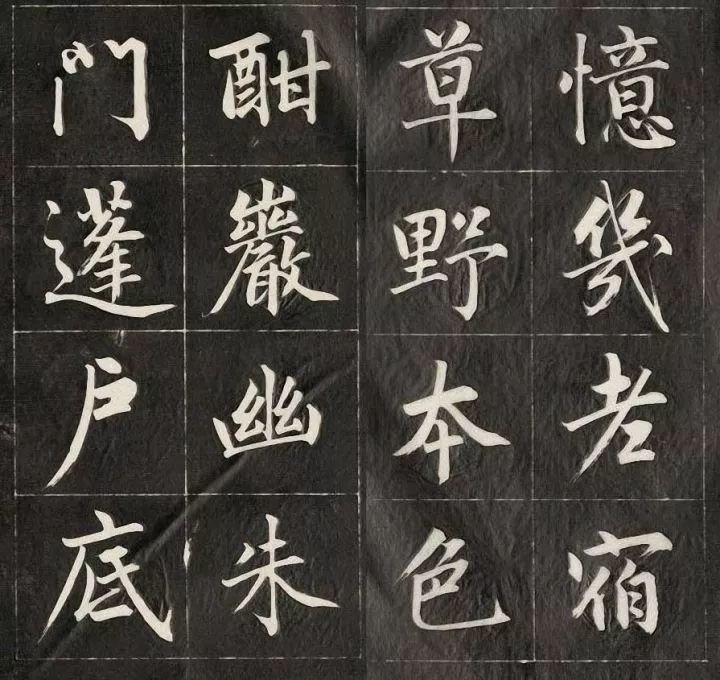 憶幾老宿
草野本色
酣巖幽朱
門蓬戶底